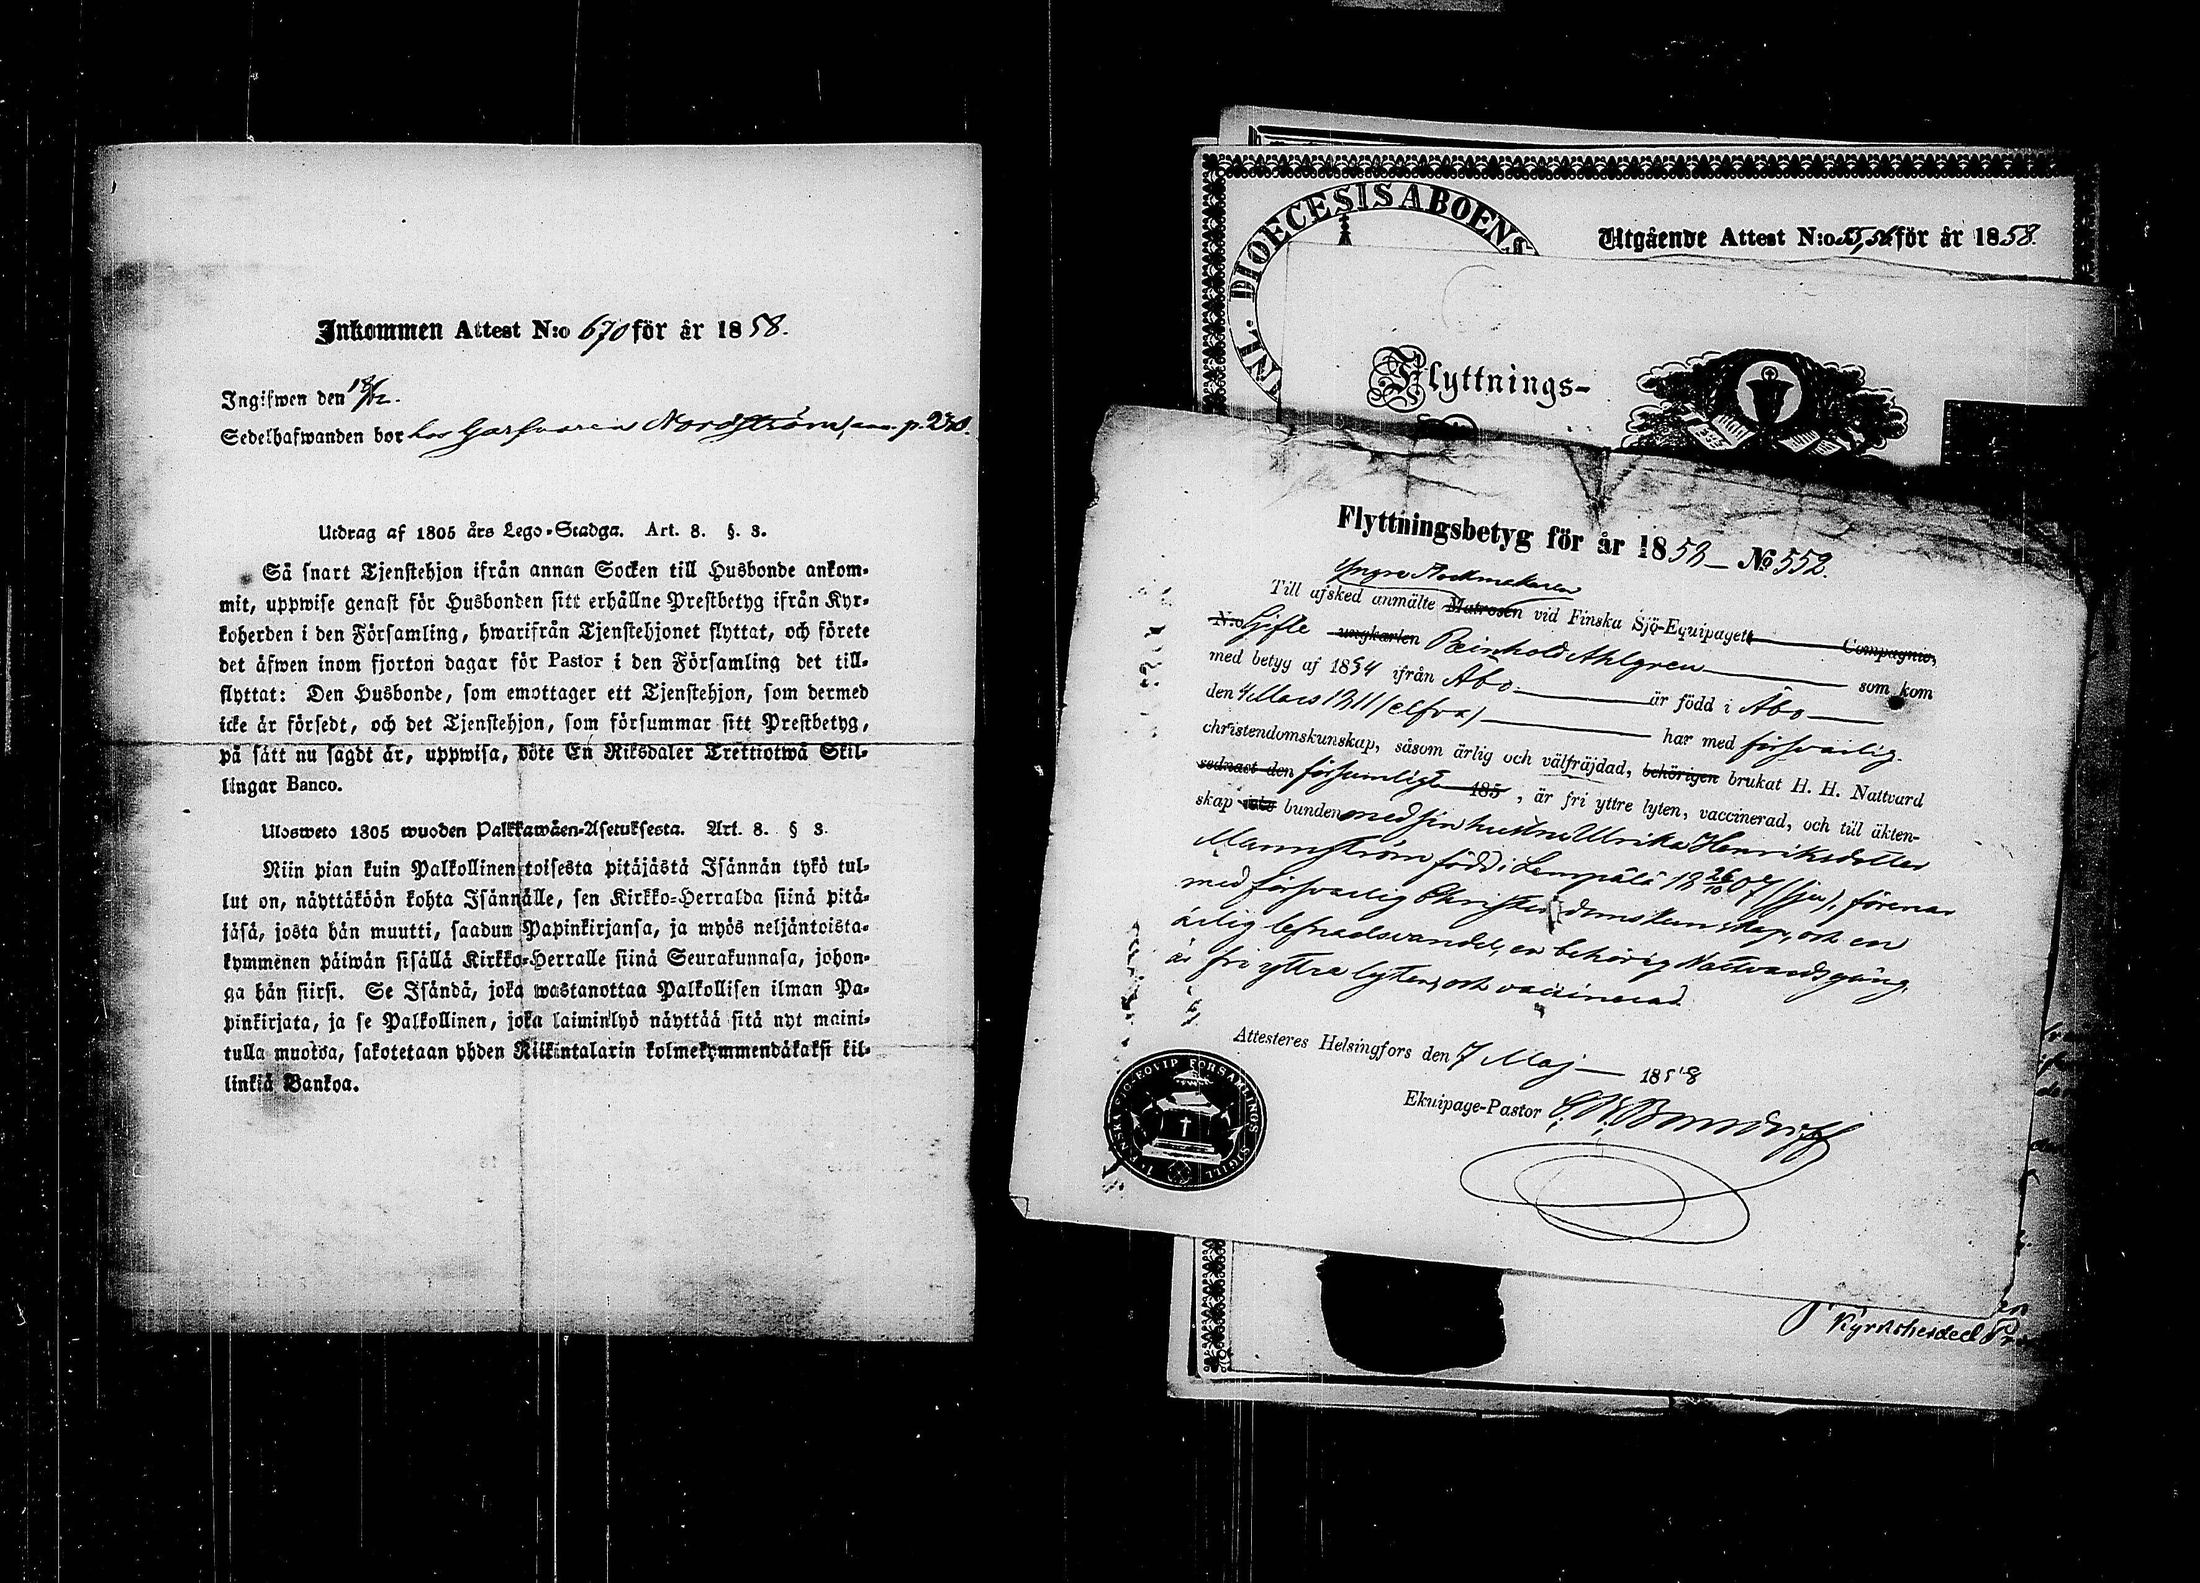 Inkommen Attest N:o 670 för år 1858.
Ingifwen den 18/12.
Sedelhafwanden bor hos Garfvaren Nordström, p. 230.
Utdrag af 1805 års Lego-Stadga. Art. 8. §. 3.
Så snart Tjenstehjon ifrån annan Socken till Husbonde ankom-
mit, uppwise genast för Husbonden sitt erhållne Prestbetyg ifrån Kyr-
koherden i den Församling, hwarifrån Tjenstehjonet flyttat, och förete
det äfwen inom fjorton dagar för Pastor i den Församling det till-
flyttat: Den Husbonde, som emottager ett Tjenstehjon, som dermed
icke är försedt, och det Tjenstehjon, som försummar sitt Prestbetyg,
på sätt nu sagdt är, uppwisa, böte En Riksdaler Trettiotwå Skil-
lingar Banco.
Ulosweto 1805 wuoden Palkkawäen-Asetuksesta. Art. 8. § 3.
Niin pian kuin Palkollinen toisesta pitäjästä Isännän tykö tul-
lut on, näyttäköön kohta Isännälle, sen Kirkko-Herralda siinä pitä-
jäsä, josta hän muutti, saadun Papinkirjansa, ja myös neljäntoista-
kymmenen päiwän sisällä Kirkko-Herralle siinä Seurakunnasa, johon-
ga hän siirsi. Se Isändä, joka wastanottaa Palkollisen ilman Pa-
pinkirjata, ja se Palkollinen, joka laiminlyö näyttää sitä nyt maini-
tulla muotoa, sakotetaan yhden Riikintalarin kolmekymmendäkaksi kil-
linkiä Bankoa.
INL. DIOECESIS ABOENS
Utgående Attest N:o för år 1858.
Flyttnings-
Flyttningsbetyg för år 1858 – No 552.
Yngre Stockmakaren
Till afsked anmälte Matrosen vid Finska Sjö-Equipaget Compagnie,
N:o Gifte ungkarlen Reinhold Ahlgren som kom
med betyg af 1854 ifrån Åbo är född i Åbo
den 4 Mars 1811 (elfva) har med försvarlig
christendomskunskap, såsom ärlig och välfräjdad, behörigen brukat H. H. Nattvard
sednast den försumligt 185 , är fri yttre lyten, vaccinerad, och till äkten-
skap icke bunden med sin hustru Ulrika Henriksdotter
Mannström född i Lempälä 18 26/10 07 (sju), förenar
med försvarlig Christendomskunskap, och en
ärlig lefnadsvandel, en behörig Nattvardsgång,
är fri yttre lyten, och vaccinerad.
Attesteres Helsingfors den 7 Maj 1858
Ekuipage-Pastor
FINSKA SJÖ-EQVIP FÖRSAMLINGS SIGILL
Kyrkoherde